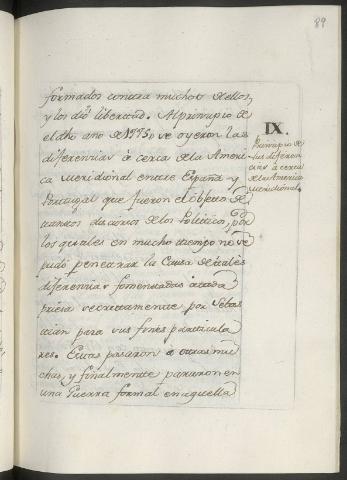 89
formados contra muchos dellos,
y los dió libertad. Al principio de
el dho año de 1775, se oyeron las
diferencias à cerca de la Ameri
ca meridional entre España y
Portugal que fueron el objeto de
tantos discursos de los Politicos, por
los quales en mucho tiempo no se
pudo penetrar la Causa de tales
diferencias fomentadas à toda
priesa secretamente por Sebas
tian para sus fines particula
res. Estas pasaron à otras mu
chas, y finalmente pararon en
una Guerra formal en aquella
IX.
Principio de
las diferen
cias à cerca
de la America
meridional.